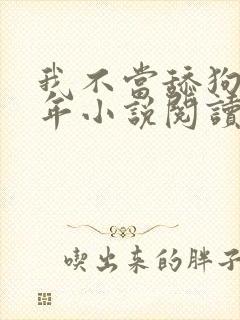 我不當舔狗
年小說閱讀
喫出来的胖子